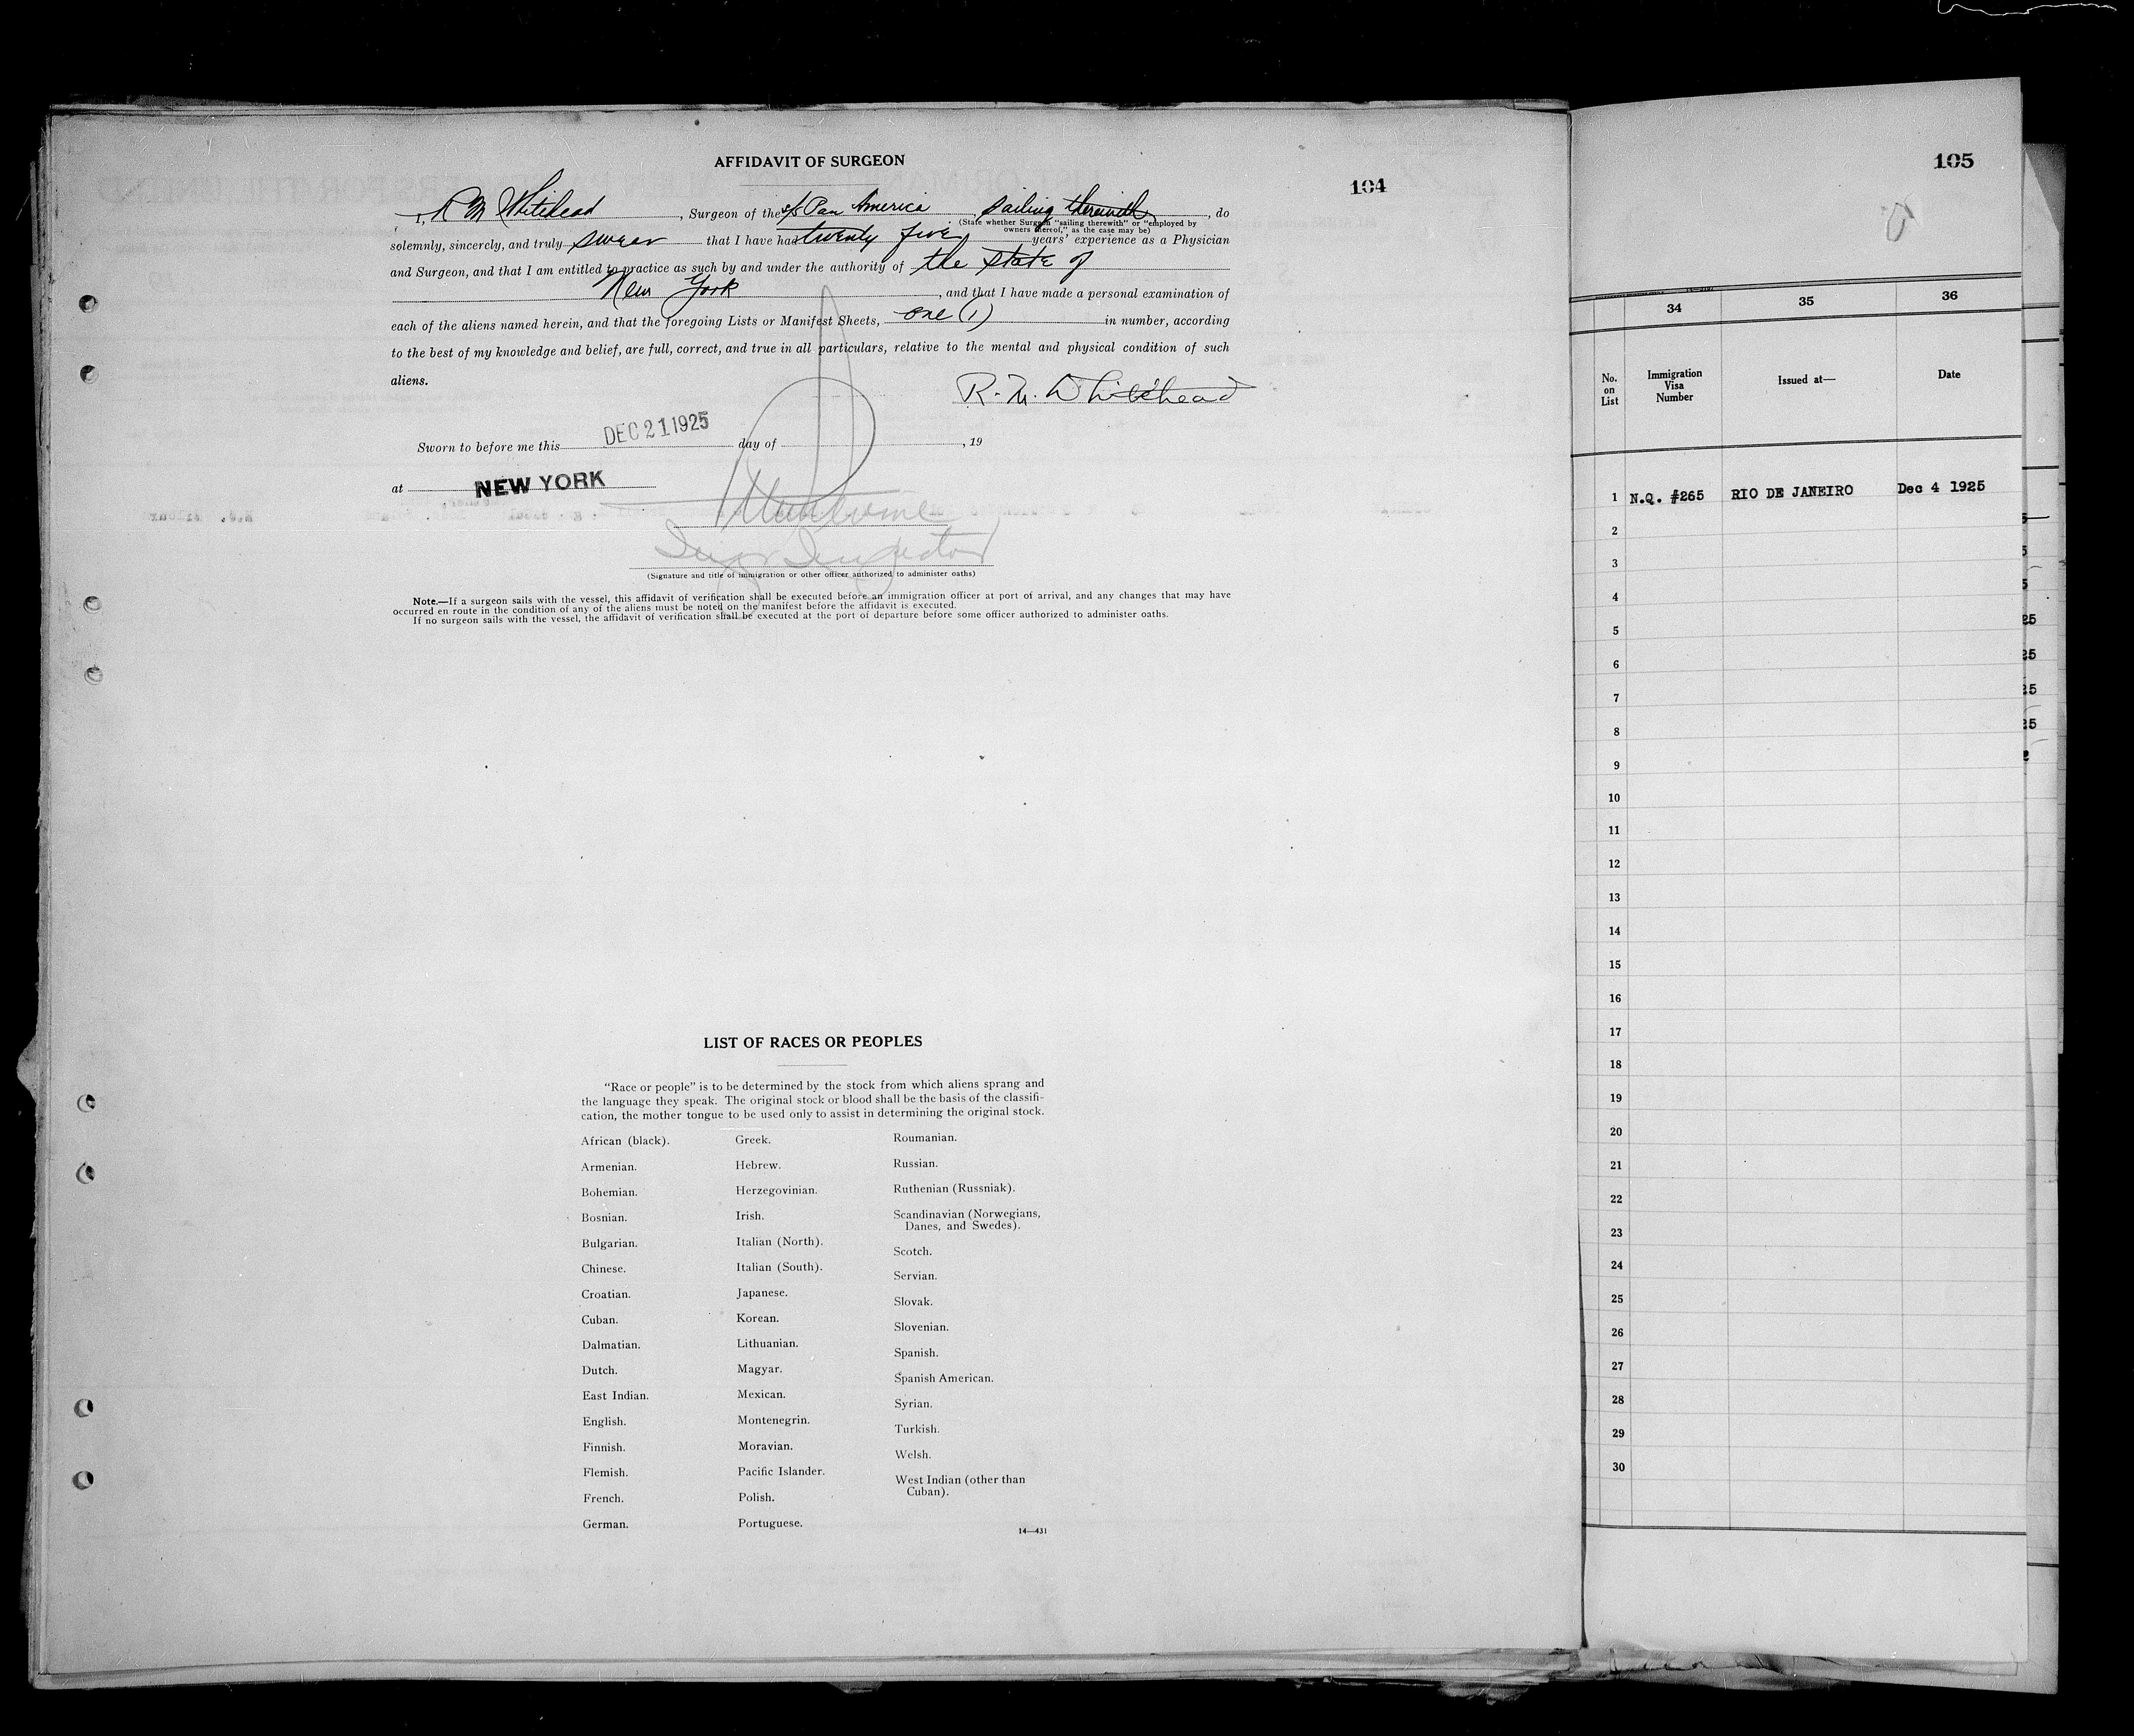 AFFIDAVIT OF SURGEON
104
I, R M Whitehead, Surgeon of the s/s Pan America, sailing therewith, do
(State whether Surgeon "sailing therewith" or "employed by
owners thereof," as the case may be)
solemnly, sincerely, and truly swear that I have had twenty five years' experience as a Physician
and Surgeon, and that I am entitled to practice as such by and under the authority of the state of
New York, and that I have made a personal examination of
each of the aliens named herein, and that the foregoing Lists or Manifest Sheets, one (1) in number, according
to the best of my knowledge and belief, are full, correct, and true in all particulars, relative to the mental and physical condition of such
aliens.
R. M. Whitehead
Sworn to before me this DEC 21 1925 day of , 19
at NEW YORK
Inspector
(Signature and title of immigration or other officer authorized to administer oaths)
Note.—If a surgeon sails with the vessel, this affidavit of verification shall be executed before an immigration officer at port of arrival, and any changes that may have
occurred en route in the condition of any of the aliens must be noted on the manifest before the affidavit is executed.
If no surgeon sails with the vessel, the affidavit of verification shall be executed at the port of departure before some officer authorized to administer oaths.
LIST OF RACES OR PEOPLES
"Race or people" is to be determined by the stock from which aliens sprang and
the language they speak. The original stock or blood shall be the basis of the classifi-
cation, the mother tongue to be used only to assist in determining the original stock.
African (black).
Armenian.
Bohemian.
Bosnian.
Bulgarian.
Chinese.
Croatian.
Cuban.
Dalmatian.
Dutch.
East Indian.
English.
Finnish.
Flemish.
French.
German.
Greek.
Hebrew.
Herzegovinian.
Irish.
Italian (North).
Italian (South).
Japanese.
Korean.
Lithuanian.
Magyar.
Mexican.
Montenegrin.
Moravian.
Pacific Islander.
Polish.
Portuguese.
Roumanian.
Russian.
Ruthenian (Russniak).
Scandinavian (Norwegians,
Danes, and Swedes).
Scotch.
Servian.
Slovak.
Slovenian.
Spanish.
Spanish American.
Syrian.
Turkish.
Welsh.
West Indian (other than
Cuban).
14—431
105
34 35 36
No. on List Immigration Visa Number Issued at— Date
1 N.Q. #265 RIO DE JANEIRO Dec 4 1925
2
3
4
5
6
7
8
9
10
11
12
13
14
15
16
17
18
19
20
21
22
23
24
25
26
27
28
29
30
25
25
25
25